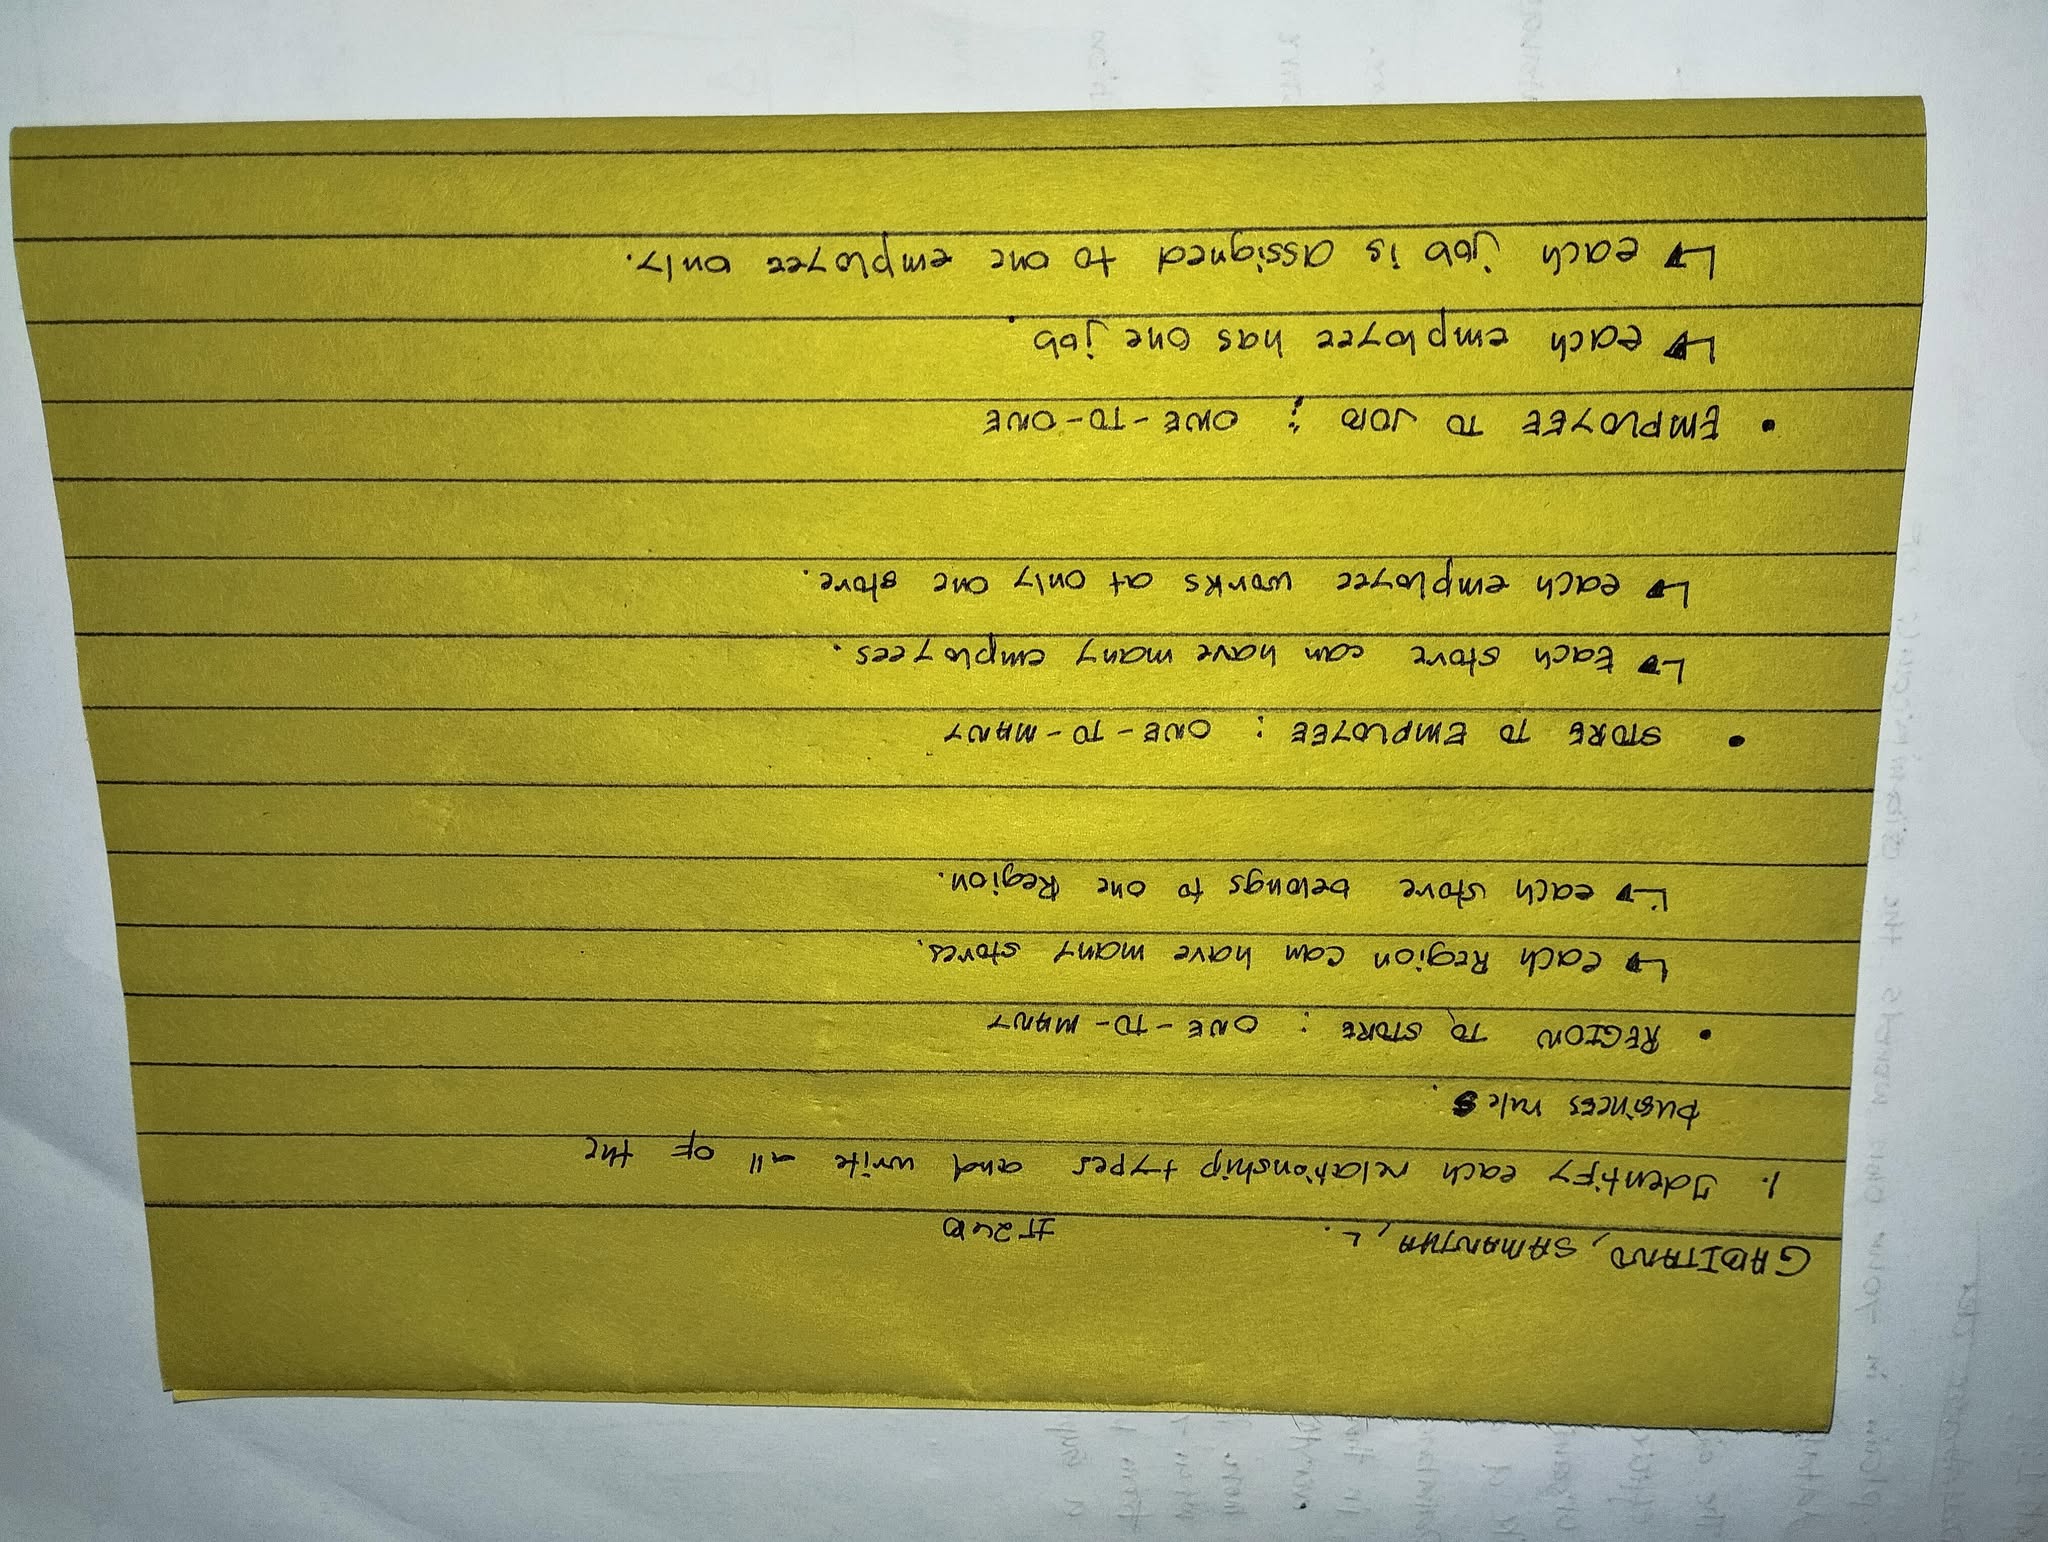 GABITANO, SAMANTHA, L. IT24B
1. Identify each relationship types and write all of the
business rules.
• REGION TO STORE : ONE-TO-MANY
↳ each Region can have many stores.
↳ each store belongs to one Region.
• STORE TO EMPLOYEE : ONE-TO-MANY
↳ Each store can have many employees.
↳ each employee works at only one store.
• EMPLOYEE TO JOB : ONE-TO-ONE
↳ each employee has one job.
↳ each job is assigned to one employee only.